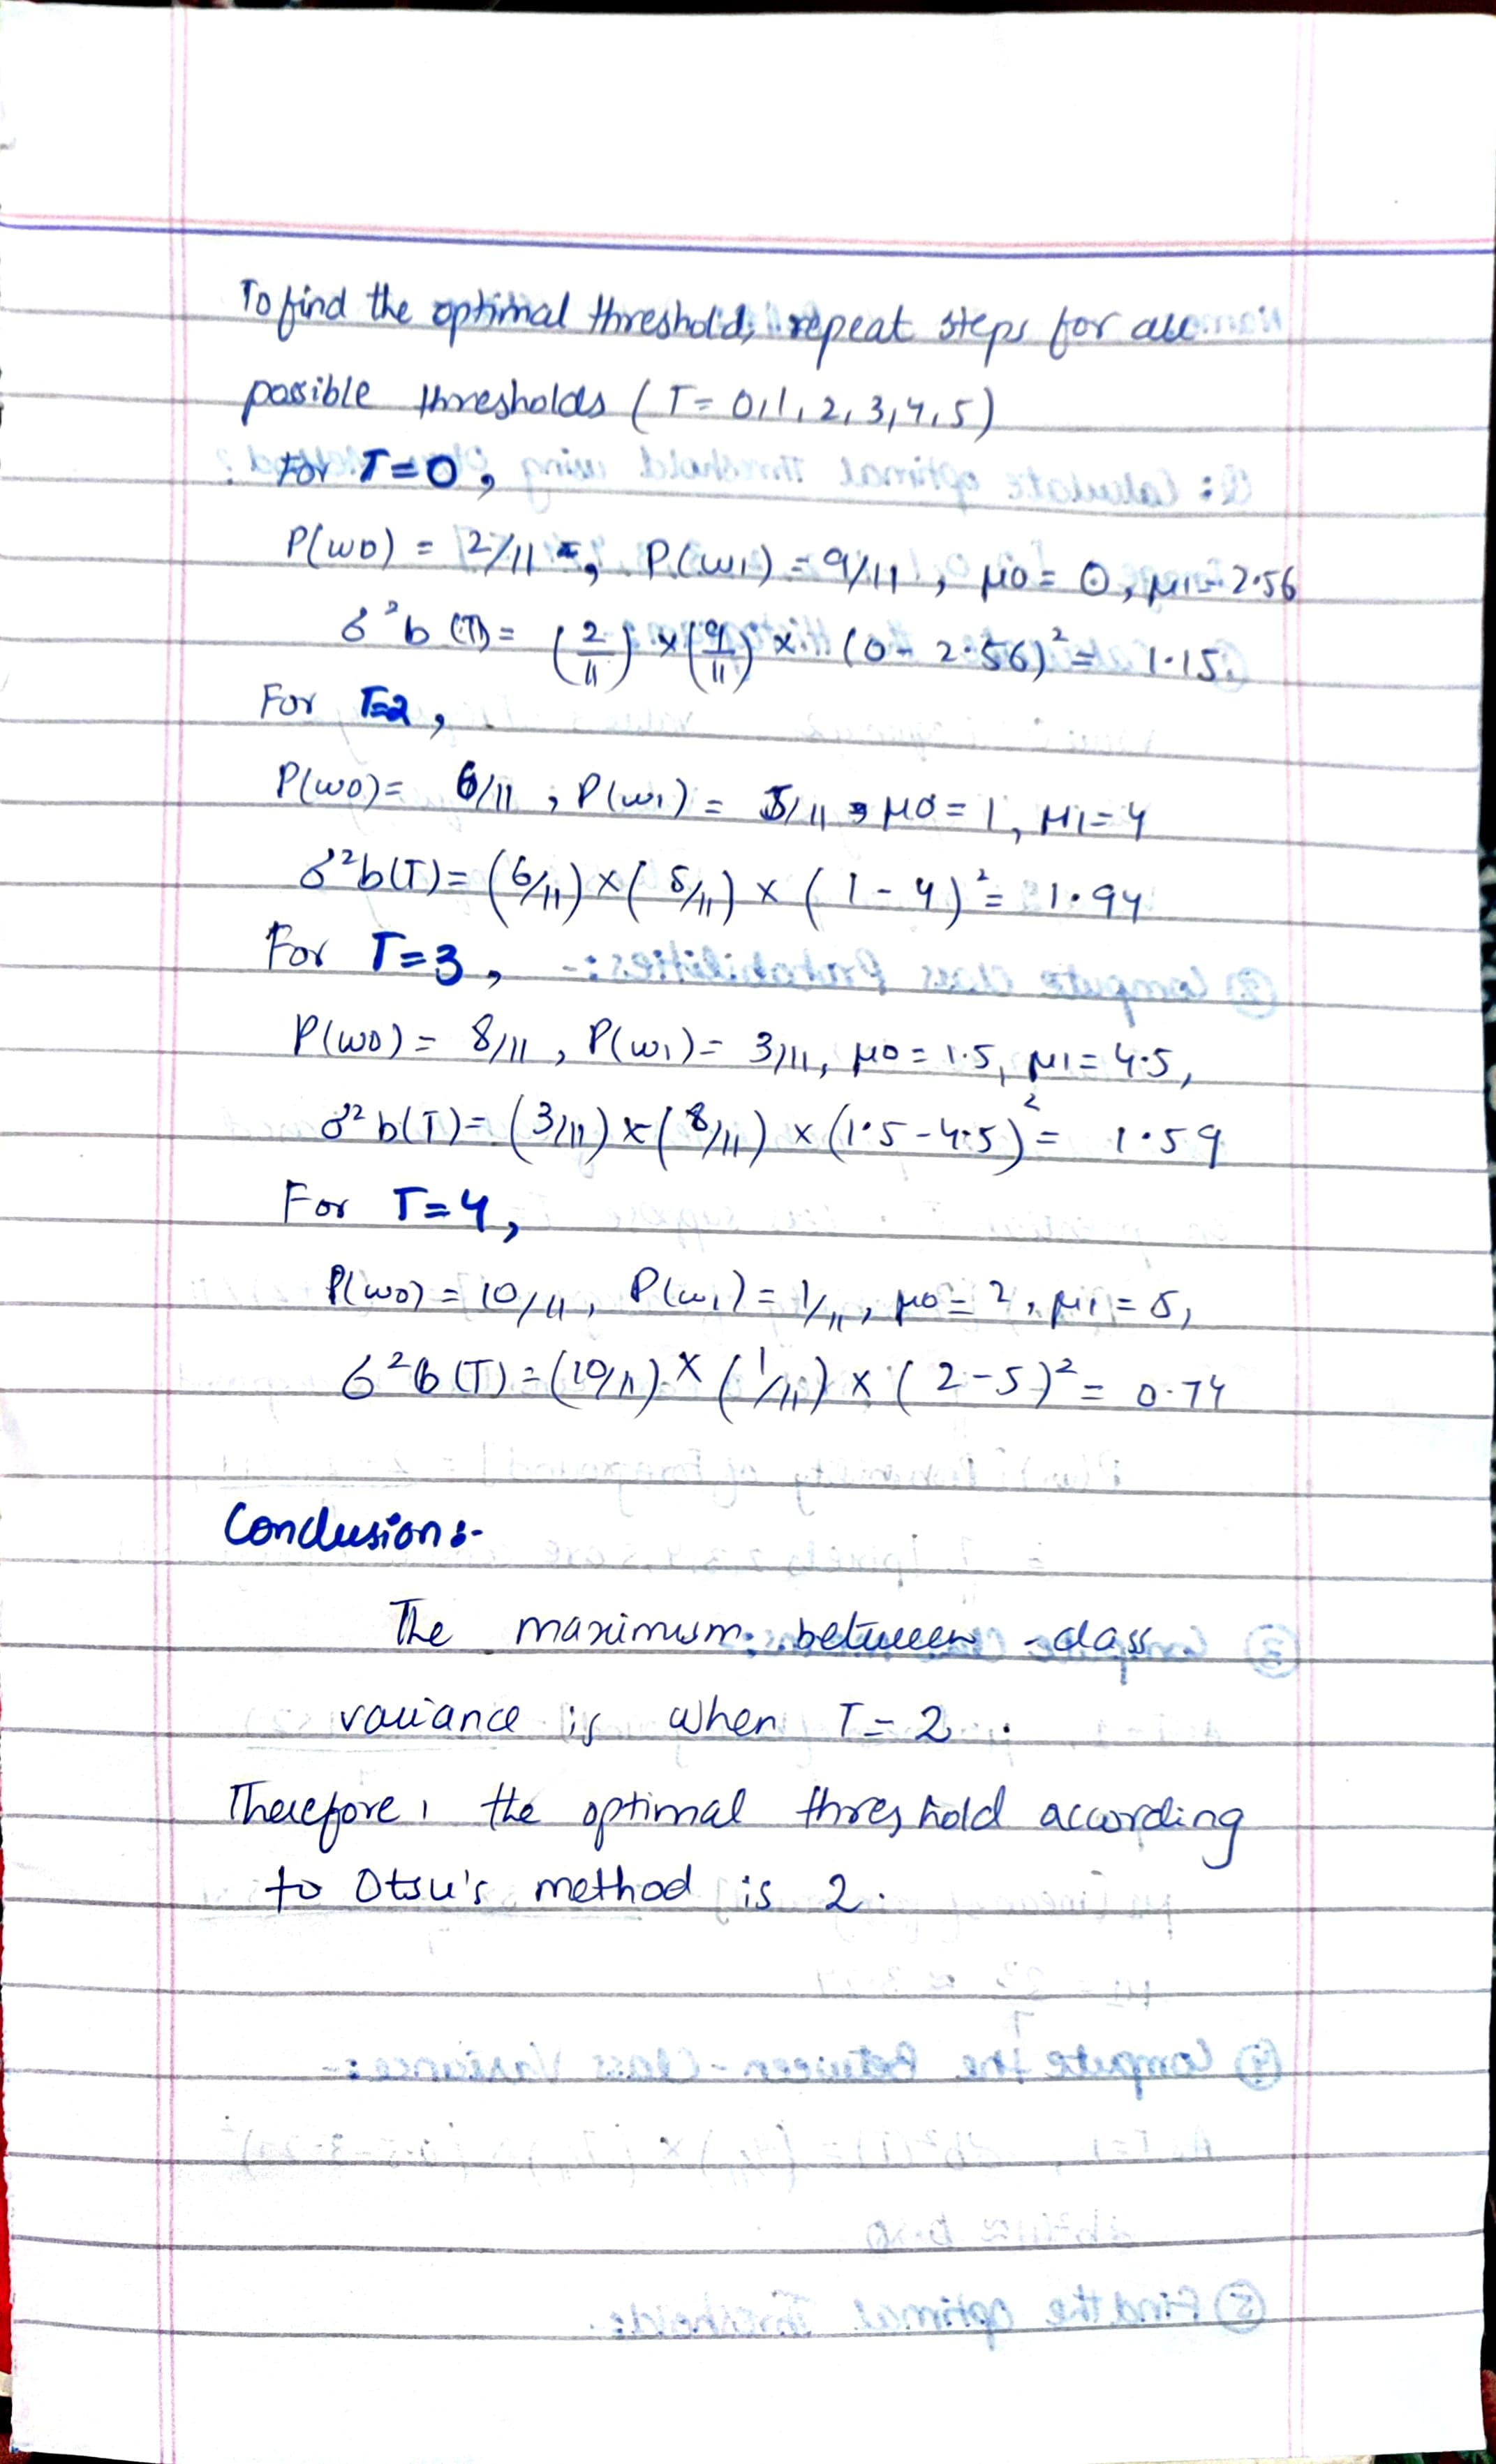 To find the optimal threshold, repeat steps for all
possible thresholds (T = 0,1,2,3,4,5)
For T=0,
P(w0) = 2/11, P(w1) = 9/11, μ0 = 0, μ1 = 2.56
б²b (T) = (2/11) × (9/11) × (0 - 2.56)² = 1.15.
For T=2,
P(w0) = 6/11, P(w1) = 5/11, μ0 = 1, μ1 = 4
б²b(T) = (6/11) × (5/11) × (1 - 4)² = 1.94
For T=3,
P(w0) = 8/11, P(w1) = 3/11, μ0 = 1.5, μ1 = 4.5,
б²b(T) = (3/11) × (8/11) × (1.5 - 4.5)² = 1.59
For T=4,
P(w0) = 10/11, P(w1) = 1/11, μ0 = 2, μ1 = 5,
б²b (T) = (10/11) × (1/11) × (2-5)² = 0.74
Conclusion:-
The maximum between-class
variance is when T = 2.
Therefore, the optimal threshold according
to Otsu's method is 2.